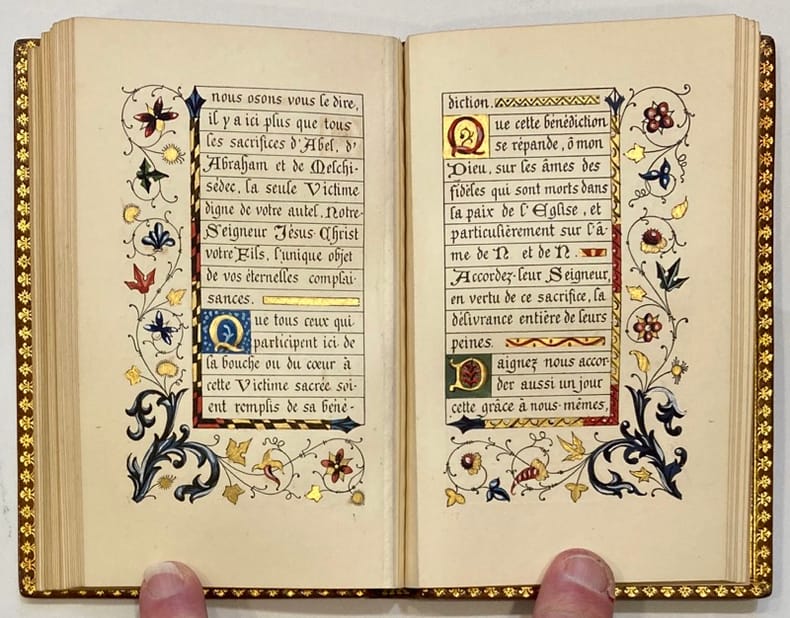 nous osons vous le dire,
il y a ici plus que tous
les sacrifices d'Abel, d'
Abraham et de Melchi-
sédec, la seule Victime
digne de votre autel, Notre-
Seigneur Jésus-Christ
votre Fils, l'unique objet
de vos éternelles complai-
sances.
Que tous ceux qui
participent ici de
la bouche ou du cœur à
cette Victime sacrée soi-
ent remplis de sa béné-
diction.
Que cette bénédiction
se répande, ô mon
Dieu, sur les âmes des
fidèles qui sont morts dans
la paix de l'Eglise, et
particulièrement sur l'â-
me de N et de N.
Accordez-leur Seigneur,
en vertu de ce sacrifice, la
délivrance entière de leurs
peines.
Daignez nous accor-
der aussi un jour
cette grâce à nous-mêmes,